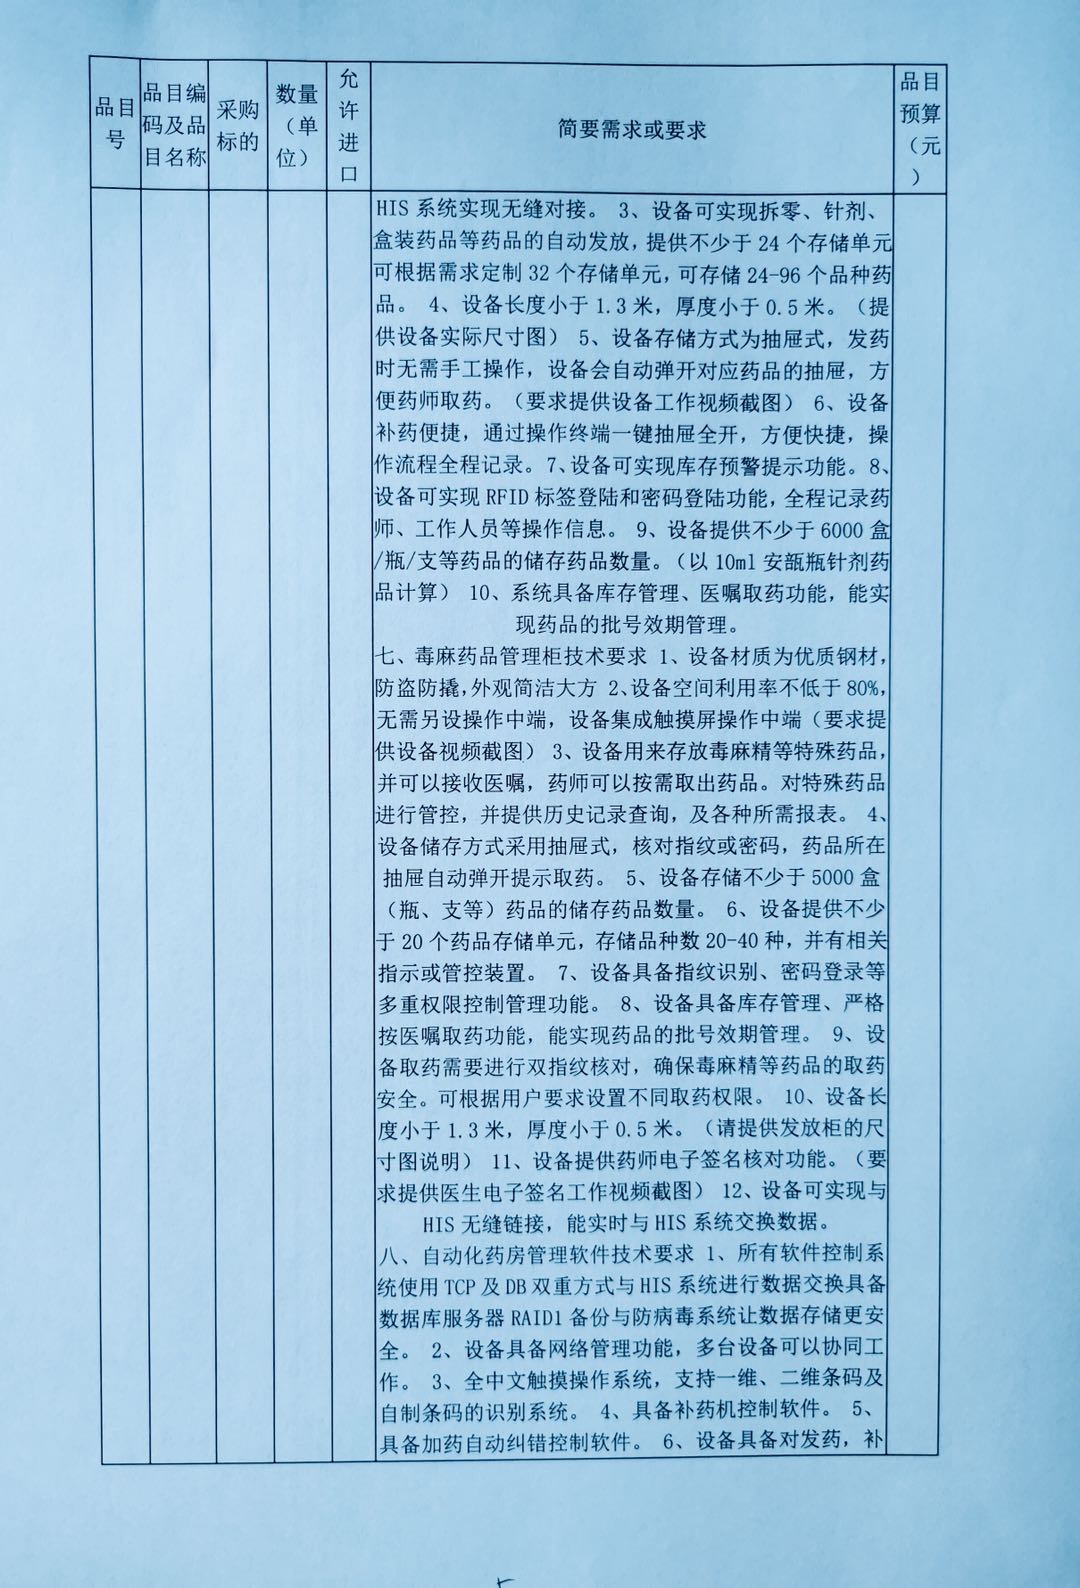 品目号
品目编码及品目名称
采购标的
数量（单位）
允许进口
简要需求或要求
品目预算（元）
HIS 系统实现无缝对接。 3、设备可实现拆零、针剂、
盒装药品等药品的自动发放，提供不少于 24 个存储单元
可根据需求定制 32 个存储单元，可存储 24-96 个品种药
品。 4、设备长度小于 1.3 米，厚度小于 0.5 米。（提
供设备实际尺寸图） 5、设备存储方式为抽屉式，发药
时无需手工操作，设备会自动弹开对应药品的抽屉，方
便药师取药。（要求提供设备工作视频截图） 6、设备
补药便捷，通过操作终端一键抽屉全开，方便快捷，操
作流程全程记录。7、设备可实现库存预警提示功能。8、
设备可实现 RFID 标签登陆和密码登陆功能，全程记录药
师、工作人员等操作信息。 9、设备提供不少于 6000 盒
/瓶/支等药品的储存药品数量。（以 10ml 安瓿瓶针剂药
品计算） 10、系统具备库存管理、医嘱取药功能，能实
现药品的批号效期管理。
七、毒麻药品管理柜技术要求 1、设备材质为优质钢材，
防盗防撬，外观简洁大方 2、设备空间利用率不低于 80%，
无需另设操作中端，设备集成触摸屏操作中端（要求提
供设备视频截图） 3、设备用来存放毒麻精等特殊药品，
并可以接收医嘱，药师可以按需取出药品。对特殊药品
进行管控，并提供历史记录查询，及各种所需报表。 4、
设备储存方式采用抽屉式，核对指纹或密码，药品所在
抽屉自动弹开提示取药。 5、设备存储不少于 5000 盒
（瓶、支等）药品的储存药品数量。 6、设备提供不少
于 20 个药品存储单元，存储品种数 20-40 种，并有相关
指示或管控装置。 7、设备具备指纹识别、密码登录等
多重权限控制管理功能。 8、设备具备库存管理、严格
按医嘱取药功能，能实现药品的批号效期管理。 9、设
备取药需要进行双指纹核对，确保毒麻精等药品的取药
安全。可根据用户要求设置不同取药权限。 10、设备长
度小于 1.3 米，厚度小于 0.5 米。（请提供发放柜的尺
寸图说明） 11、设备提供药师电子签名核对功能。（要
求提供医生电子签名工作视频截图） 12、设备可实现与
HIS 无缝链接，能实时与 HIS 系统交换数据。
八、自动化药房管理软件技术要求 1、所有软件控制系
统使用 TCP 及 DB 双重方式与 HIS 系统进行数据交换具备
数据库服务器 RAID1 备份与防病毒系统让数据存储更安
全。 2、设备具备网络管理功能，多台设备可以协同工
作。 3、全中文触摸操作系统，支持一维、二维条码及
自制条码的识别系统。 4、具备补药机控制软件。 5、
具备加药自动纠错控制软件。 6、设备具备对发药，补